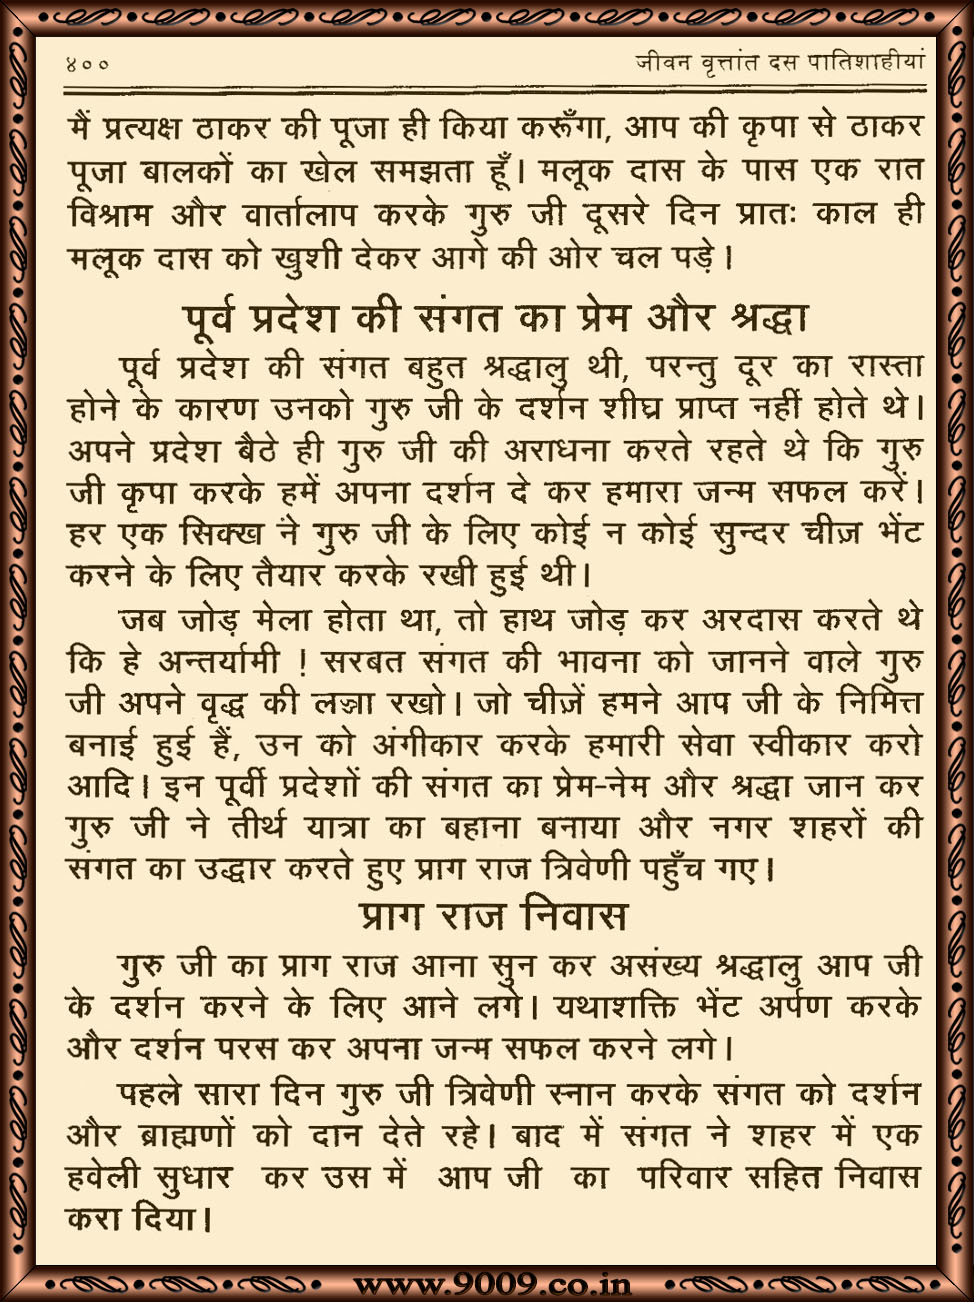 ४०० जीवन वृत्तांत दस पातिशाहीयां
मैं प्रत्यक्ष ठाकर की पूजा ही किया करूँगा, आप की कृपा से ठाकर
पूजा बालकों का खेल समझता हूँ। मलूक दास के पास एक रात
विश्राम और वार्तालाप करके गुरु जी दूसरे दिन प्रातः काल ही
मलूक दास को खुशी देकर आगे की ओर चल पड़े।
पूर्व प्रदेश की संगत का प्रेम और श्रद्धा
पूर्व प्रदेश की संगत बहुत श्रद्धालु थी, परन्तु दूर का रास्ता
होने के कारण उनको गुरु जी के दर्शन शीघ्र प्राप्त नहीं होते थे।
अपने प्रदेश बैठे ही गुरु जी की अराधना करते रहते थे कि गुरु
जी कृपा करके हमें अपना दर्शन दे कर हमारा जन्म सफल करें।
हर एक सिक्ख ने गुरु जी के लिए कोई न कोई सुन्दर चीज़ भेंट
करने के लिए तैयार करके रखी हुई थी।
जब जोड़ मेला होता था, तो हाथ जोड़ कर अरदास करते थे
कि हे अन्तर्यामी ! सरबत संगत की भावना को जानने वाले गुरु
जी अपने वृद्ध की लज्जा रखो। जो चीज़ें हमने आप जी के निमित्त
बनाई हुई हैं, उन को अंगीकार करके हमारी सेवा स्वीकार करो
आदि। इन पूर्वी प्रदेशों की संगत का प्रेम-नेम और श्रद्धा जान कर
गुरु जी ने तीर्थ यात्रा का बहाना बनाया और नगर शहरों की
संगत का उद्धार करते हुए प्राग राज त्रिवेणी पहुँच गए।
प्राग राज निवास
गुरु जी का प्राग राज आना सुन कर असंख्य श्रद्धालु आप जी
के दर्शन करने के लिए आने लगे। यथाशक्ति भेंट अर्पण करके
और दर्शन परस कर अपना जन्म सफल करने लगे।
पहले सारा दिन गुरु जी त्रिवेणी स्नान करके संगत को दर्शन
और ब्राह्मणों को दान देते रहे। बाद में संगत ने शहर में एक
हवेली सुधार कर उस में आप जी का परिवार सहित निवास
करा दिया।
www.9009.co.in